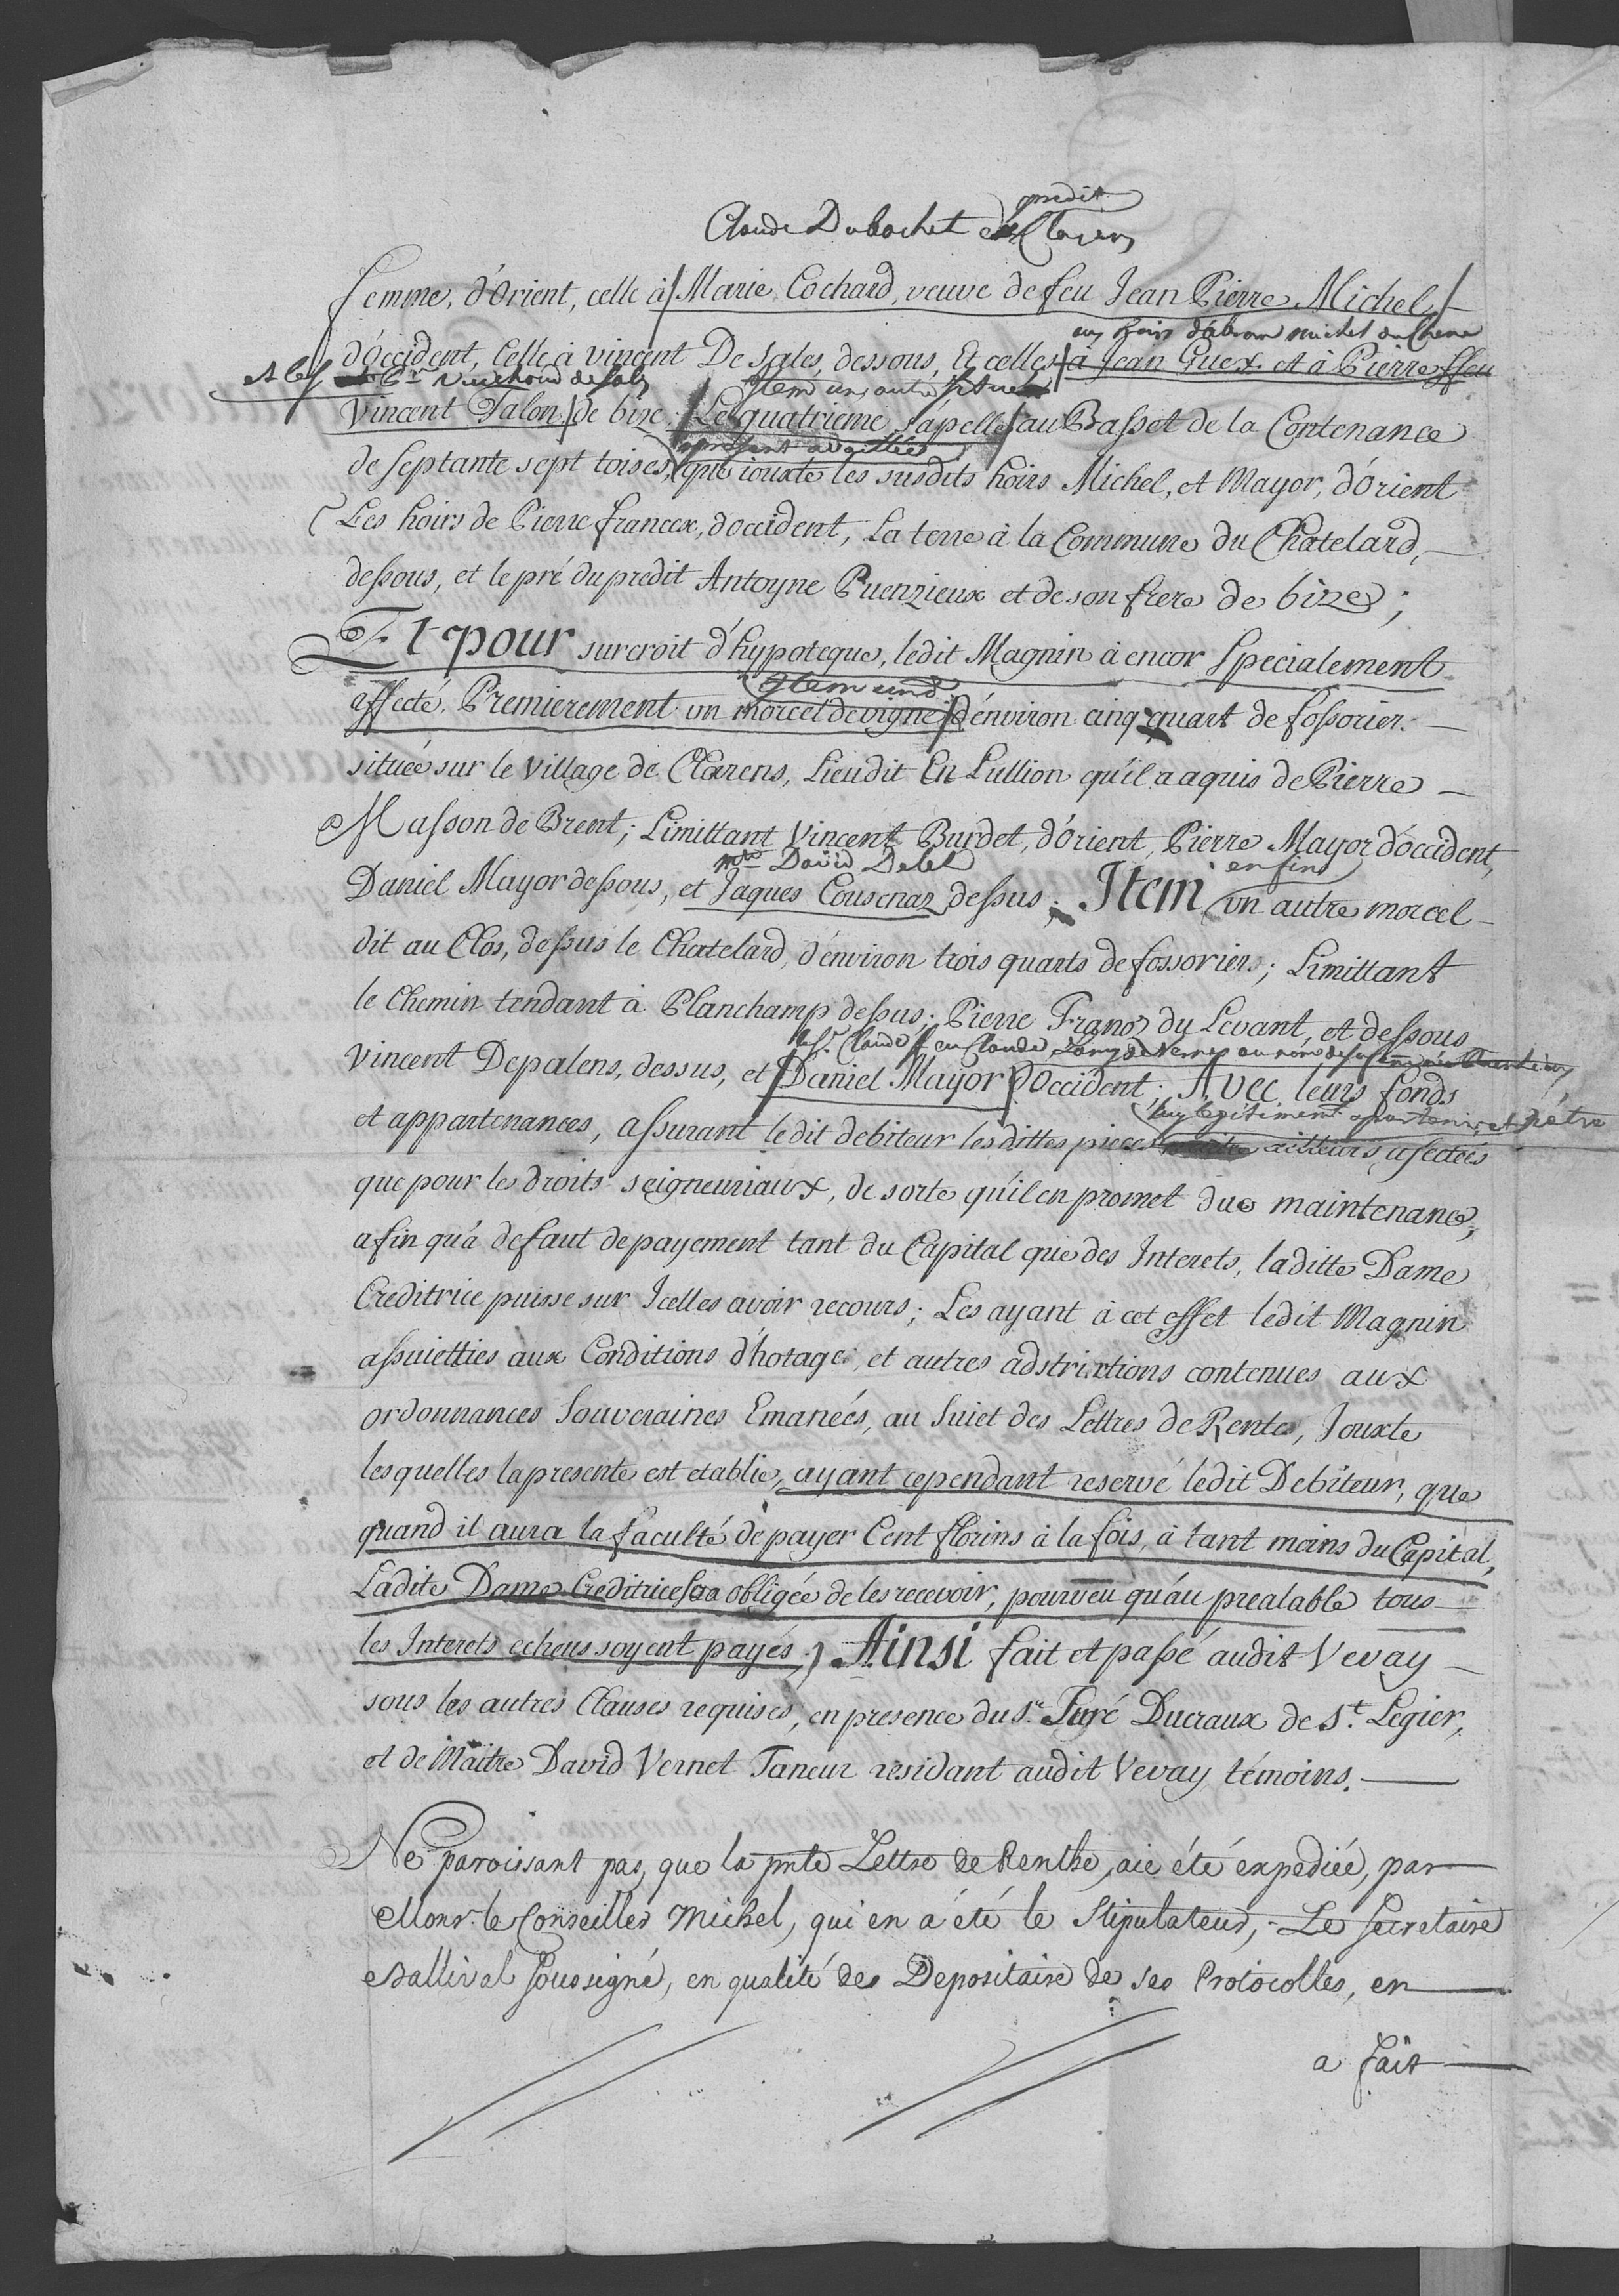 predit
Claude Dubochet de Clarens
femme, d'Orient, celle à Marie Cochard, veuve de feu Jean Pierre Michel,
aux hoirs d'abram michel du Chene
d'Occident, Celle à vincent De Sales, dessous, Et celles à Jean Guex et à Pierre ffeu
et les
Item un autre situé
Vincent Talon de bize; Le quatrieme s'apelle au Basset de la Contenance
de septante sept toises, que iouxte les susdits hoirs Michel, et Mayor, d'Orient
Les hoirs de Pierre francex, d'occident, La terre à la Commune du Chatelard,
dessous, et le pré du predit Antoyne Puenzieux et de son frere de bize;
Et pour surcroit d'hypoteque, ledit Magnin à encor specialement
Item une
affecté, Premierement un morcel de vigne d'énviron cinq quart de fossorier.
située sur le Village de Clarens, Lieu dit En Lullion qu'il a aquis de Pierre
Masson de Brent; Limittant Vincent Burdet, d'Orient, Pierre Mayor d'occident,
mtre David Debet
enfin
Daniel Mayor dessous, et Jaques Cousenaz dessus; Item un autre morcel
dit au Clos, dessus le Chatelard, d'énviron trois quarts de fossoriers; Limittant
le Chemin tendant à Planchamp dessus; Pierre Franc du Levant, et dessous
le Sr. Claude feu Claude
Vincent Depalens, dessus, et Daniel Mayor d'Occident; Avec leurs fonds
luy legitimement apartenir, et n'étre
et appartenances, assurant ledit debiteur lesdittes pieces ailleurs afectées
que pour les droits seigneuriaux, de sorte qu'il en promet due maintenance,
afin qu'à defaut de payement tant du Capital que des Interets, laditte Dame
Creditrice puisse sur Icelles avoir recours; Les ayant à cet effet ledit Magnin
assuietties aux Conditions d'hotage, et autres adstrixtions contenues aux
ordonnances Souveraines Emanées, au Suiet des Lettres de Rente, Jouxte
lesquelles la presente est etablie, ayant cependant reservé ledit Debiteur, que
quand il aura la faculté de payer Cent florins à la fois, à tant moins du Capital,
Ladite Dame Creditrice sera obligée de les recevoir, pourveu qu'au prealable tous
les Interets echeus soyent payés; Ainsi fait et passé audit Vevay
sous les autres Clauses requises, en presence du Sr. Juré Ducraux de St. Legier,
et de Maitre David Vernet Taneur residant audit Vevay, témoins.
Ne paroissant pas, que la pnte Lettre de Renthe, aie été éxpediée, par
Monsr. le Conseiller Michel, qui en a été le Stipulateur, Le Secretaire
Ballival soussigné, en qualité des Depositaire de ses Protocolles, en
a fait